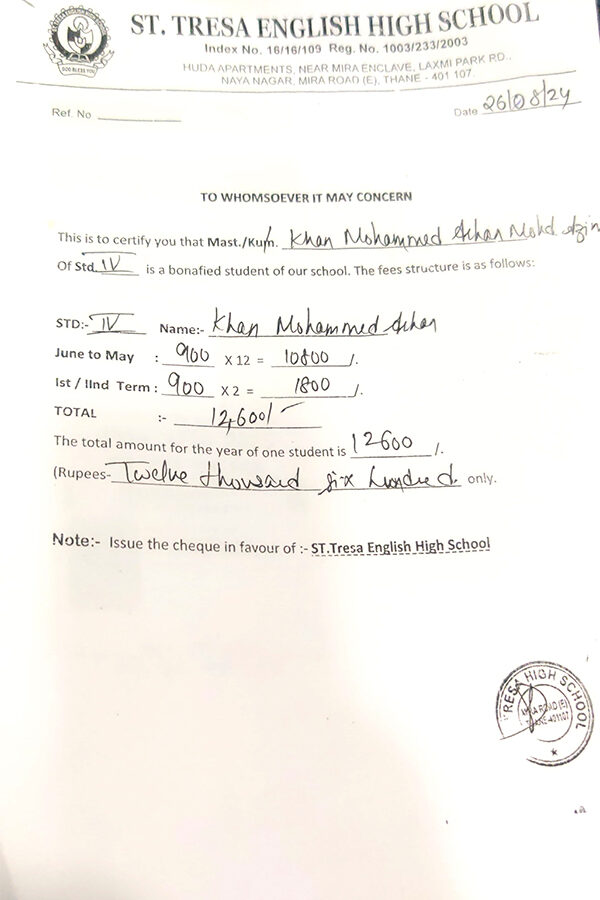 ST. TRESA ENGLISH HIGH SCHOOL
Index No. 16/16/109 Reg. No. 1003/233/2003
HUDA APARTMENTS, NEAR MIRA ENCLAVE, LAXMI PARK RD.,
NAYA NAGAR, MIRA ROAD (E), THANE - 401 107.
GOD BLESS YOU
Ref. No
Date 26/08/24
TO WHOMSOEVER IT MAY CONCERN
This is to certify you that Mast./Kum. Khan Mohammed Mohd
Of Std. IV is a bonafied student of our school. The fees structure is as follows:
STD:- IV Name:- Khan Mohammed
June to May : 900 X 12 = 10800 /.
Ist / IInd Term : 900 X 2 = 1800 /.
TOTAL :- 12,600/-
The total amount for the year of one student is 12600 /.
(Rupees- Twelve thousand six hundred only.
Note:- Issue the cheque in favour of :- ST.Tresa English High School
TRESA HIGH SCHOOL
MIRA ROAD (E)
THANE-401107